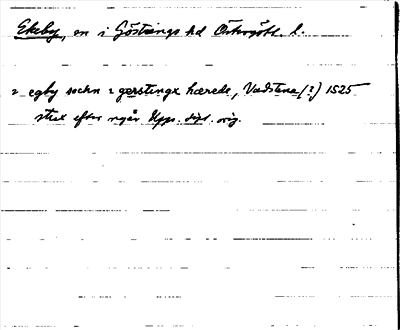 Ekeby, sn i Göstrings hd Östergötl. l.
i egby sochn i gørstinge hærede, Vadstena (?) 1525
strax efter nyår Upps. dipl. orig.